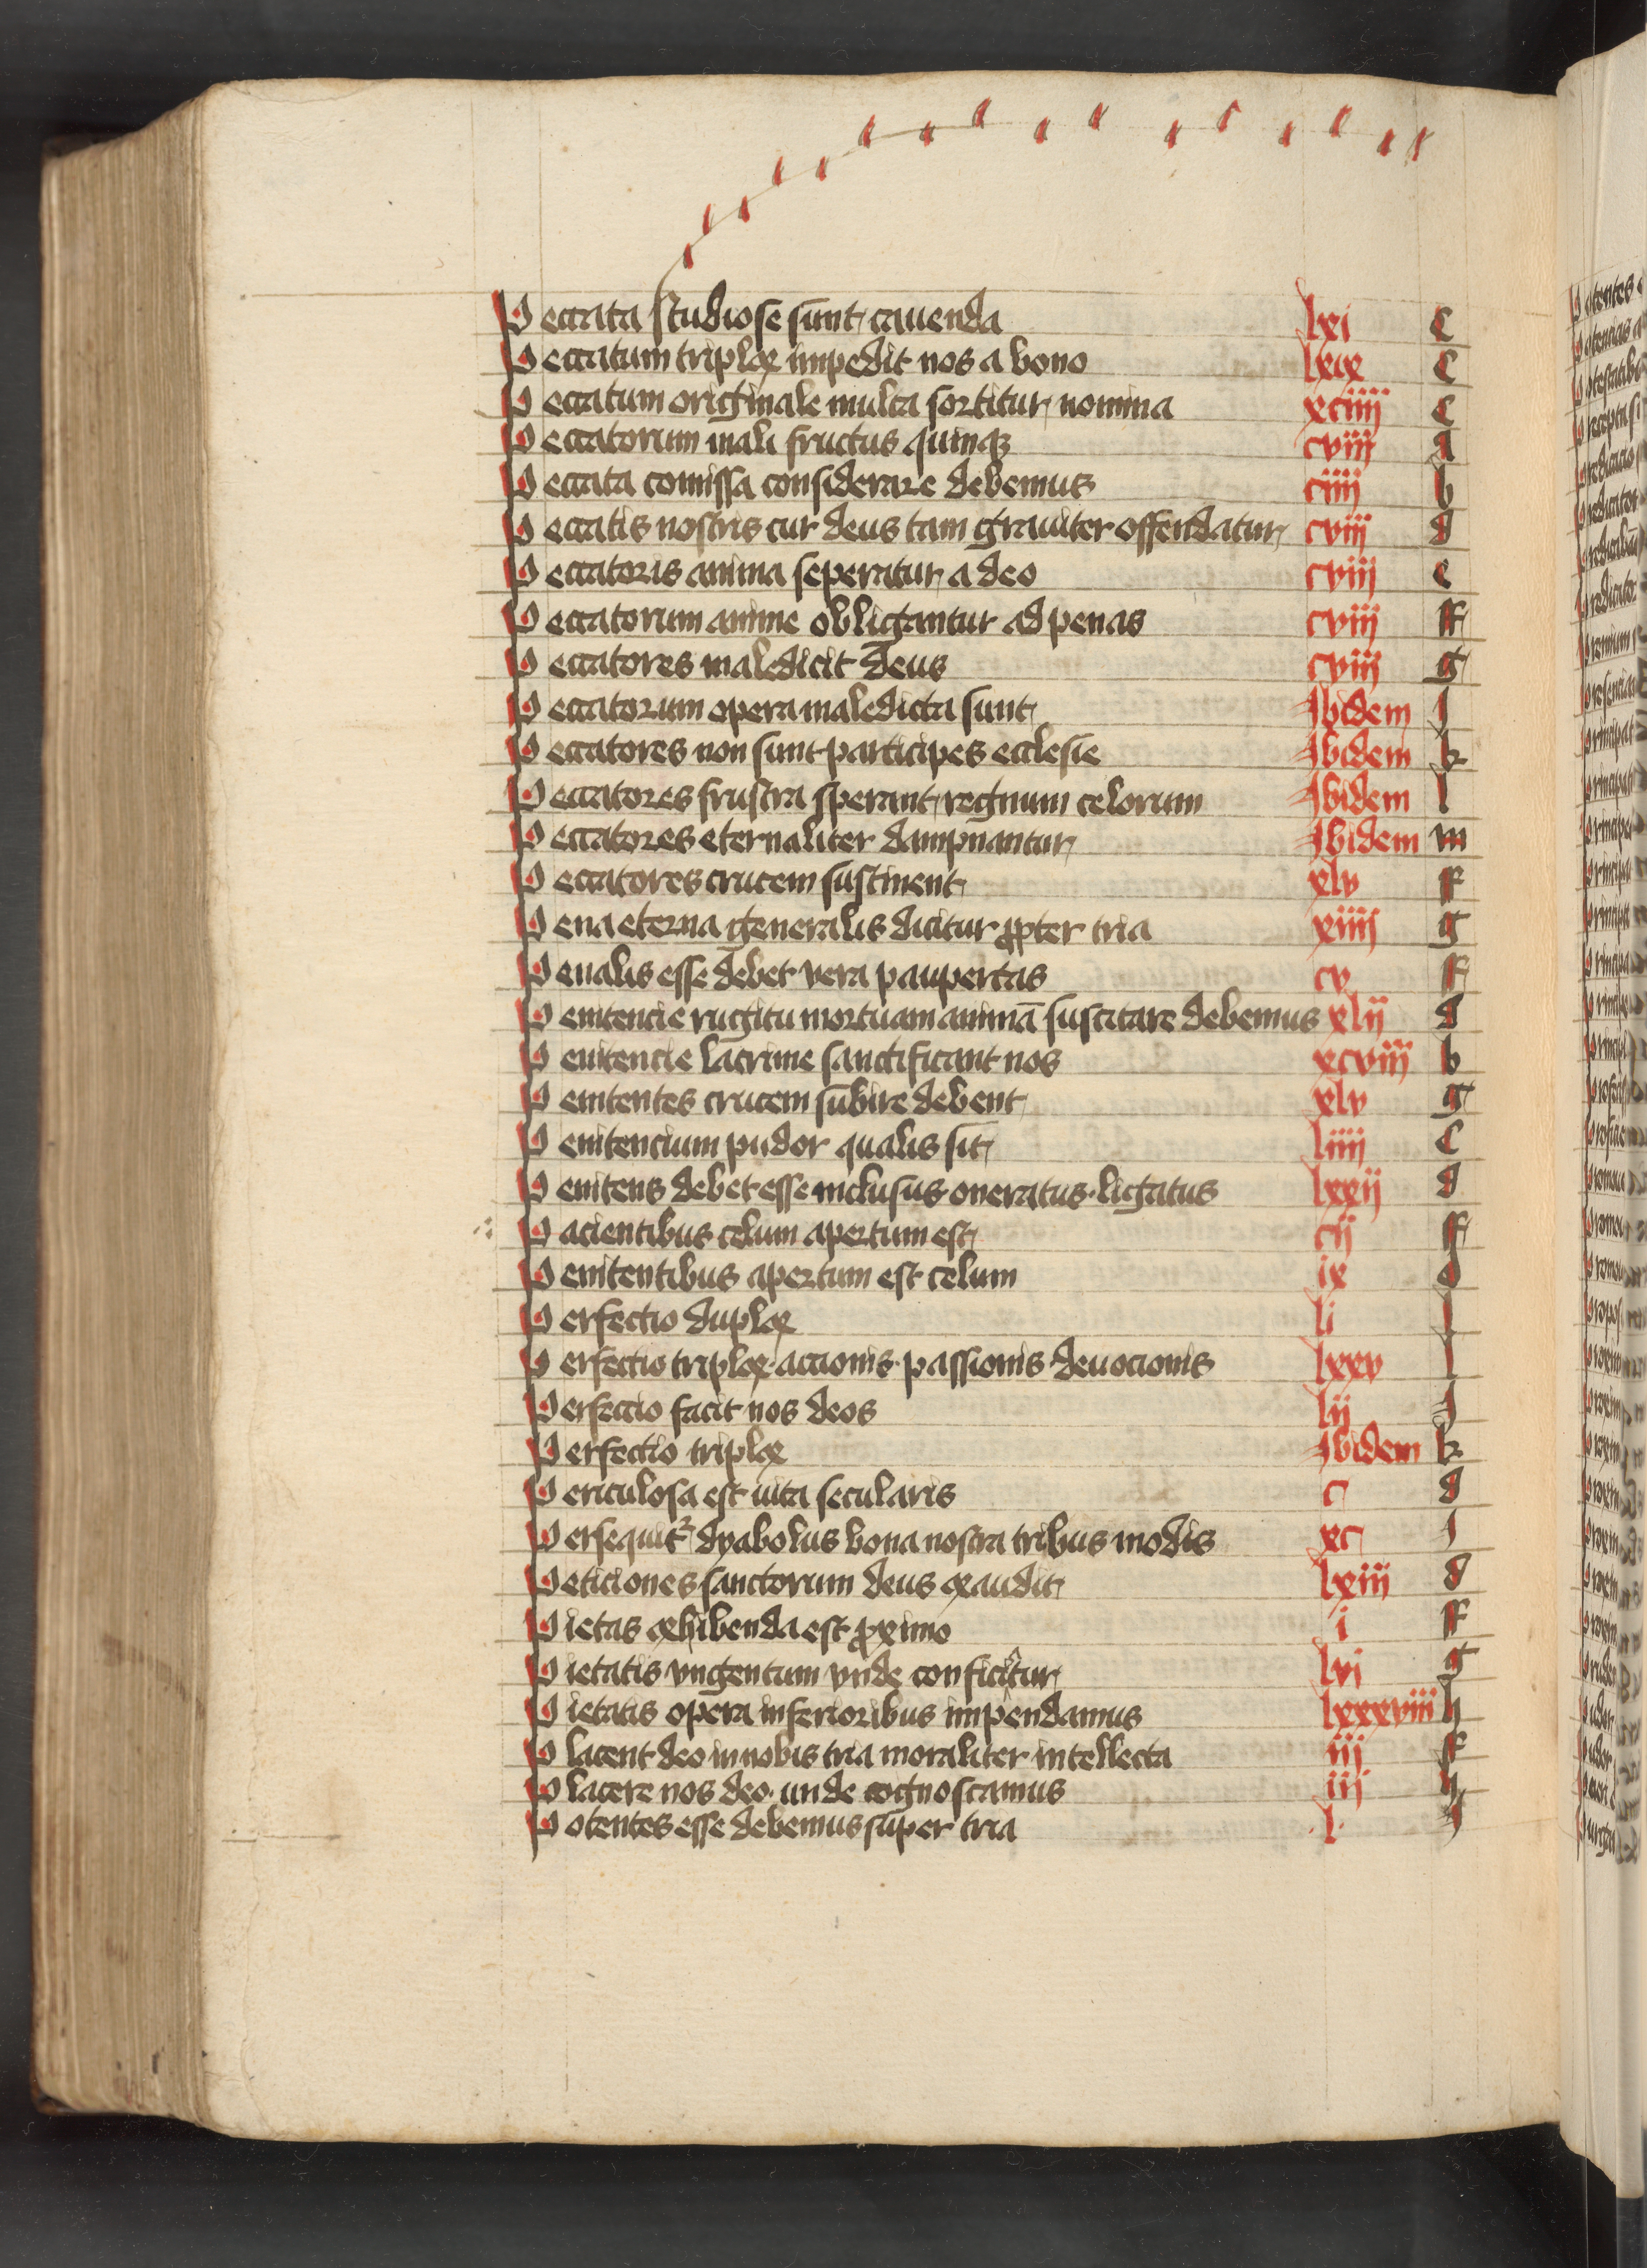 Peccata studiose sunt cauenda lxi c
Peccatum triplex impedit nos a bono lxix c
Peccatum originale multa sortitur nomina xciiij c
Peccatorum mali fructus quinqz cviij a
Peccata comissa considerare debemus ciiij b
Peccatis nostris cur deus tam grauiter offendatur cviij d
Peccatoris anima seperatur a deo cviij e
Peccatorum anime obligantur ad penas cviij ff
Peccatores maledicit deus cviij g
Peccatorum opera maledicta sunt Ibidem I
Peccatores non sunt participes ecclesie Ibidem k
Peccatores frustra sperant regnum celorum Ibidem l
Peccatores eternaliter dampnantur Ibidem m
Peccatores crucem sustinent xlv ff
Pena eterna generalis dicitur propter tria xiiij g
Penalis esse debet vera paupertas cv ff
Penitencie rugitu mortuam animā suscitare debemus xlij d
Penitencie lacrime sanctificant nos xcviij b
Penitentes crucem subire debent xlv g
Penitencium pudor qualis sit liiij c
Penitens debet esse inclusus oneratus· ligatus lxxij d
Pacientibus celum apertum est cij ff
Penitentibus apertum est celum ix d
Perfectio duplex li I
Perfectio triplex· accionis· passionis· deuocionis lxxv l
Perfectio facit nos deos lij I
Perfectio triplex Ibidem k
Periculosa est uita secularis c d
Persequitr dyabolus bona nostra tribus modis xc I
Peticiones sanctorum deus exaudit lxiij d
Pietas exhibenda est proximo i ff
Pietatis vngentum vnde conficitur lvi g
Pietatis opera inferioribus impendamus lxxxviij h
Placent deo in nobis tria moraliter intellecta iij ff
Placere nos deo· unde cognoscamus iij h
Potentes esse debemus super tria l· I